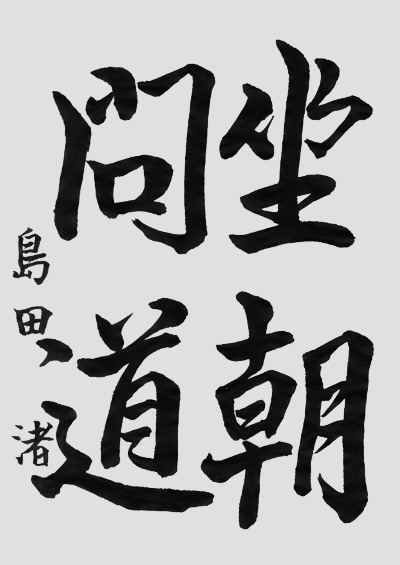 坐朝
問道
島田渚